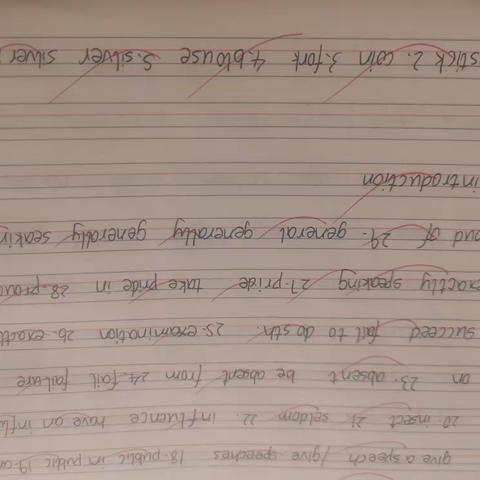 give a speech / give speeches 18.public in public 19.an
20.insect 21.seldom 22.influence have an influ
an 23.absent be absent from 24.fail failure
succeed fail to do sth. 25.examination 26.exactl
exactly speaking 27.pride take pride in 28.proud
oud of 29.general generally generally seakin
introduction
stick 2.coin 3.fork 4.blouse 5.silver silver